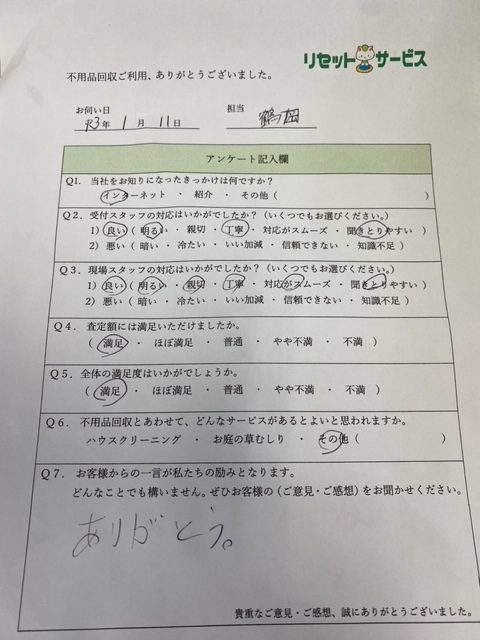 リセットサービス
不用品回収ご利用、ありがとうございました。
お伺い日 担当
R3年 1月 11日 鶴田
アンケート記入欄
Q1. 当社をお知りになったきっかけは何ですか？
インターネット ・ 紹介 ・ その他（ ）
Q2. 受付スタッフの対応はいかがでしたか？（いくつでもお選びください。）
1) 良い（ 明るい ・ 親切 ・ 丁寧 ・ 対応がスムーズ ・ 聞きとりやすい ）
2) 悪い（ 暗い ・ 冷たい ・ いい加減 ・ 信頼できない ・ 知識不足 ）
Q3. 現場スタッフの対応はいかがでしたか？（いくつでもお選びください。）
1) 良い（ 明るい ・ 親切 ・ 丁寧 ・ 対応がスムーズ ・ 聞きとりやすい ）
2) 悪い（ 暗い ・ 冷たい ・ いい加減 ・ 信頼できない ・ 知識不足 ）
Q4. 査定額には満足いただけましたか。
（ 満足 ・ ほぼ満足 ・ 普通 ・ やや不満 ・ 不満 ）
Q5. 全体の満足度はいかがでしょうか。
（ 満足 ・ ほぼ満足 ・ 普通 ・ やや不満 ・ 不満 ）
Q6. 不用品回収とあわせて、どんなサービスがあるとよいと思われますか。
ハウスクリーニング ・ お庭の草むしり ・ その他（ ）
Q7. お客様からの一言が私たちの励みとなります。
どんなことでも構いません。ぜひお客様の（ご意見・ご感想）をお聞かせください。
ありがとう。
貴重なご意見・ご感想、誠にありがとうございました。